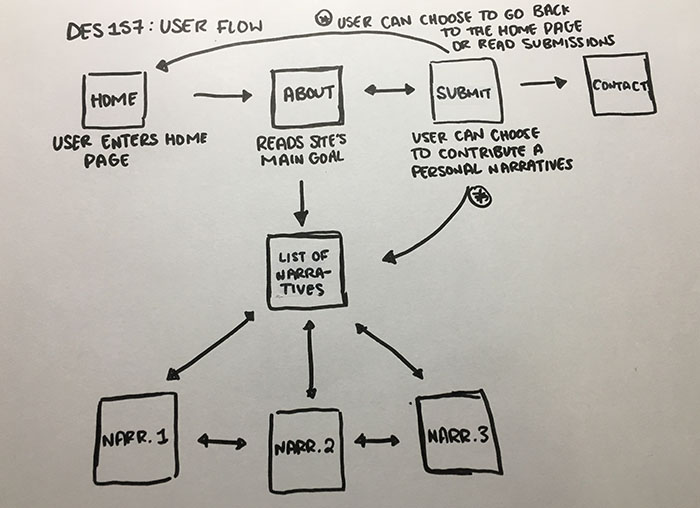 DES 157: USER FLOW
* USER CAN CHOOSE TO GO BACK
TO THE HOME PAGE
OR READ SUBMISSIONS
HOME
ABOUT
SUBMIT
CONTACT
USER ENTERS HOME
PAGE
READS SITE'S
MAIN GOAL
USER CAN CHOOSE
TO CONTRIBUTE A
PERSONAL NARRATIVES
*
LIST OF
NARRA-
TIVES
NARR. 1
NARR. 2
NARR. 3